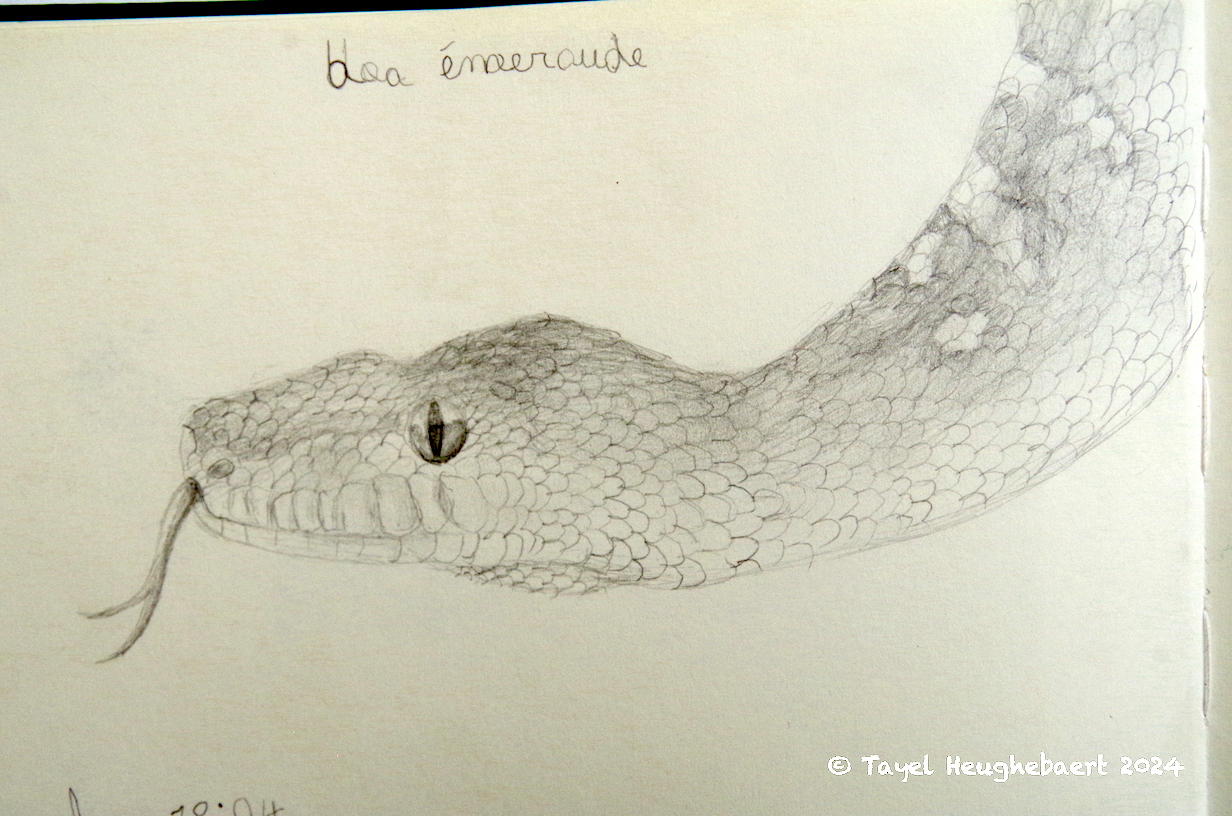 boa émeraude
© Tayel Heughebaert 2024